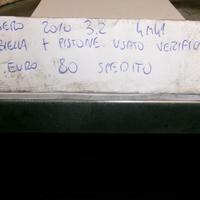 2010 3.2 4M41
BIELLA + PISTONE USATO VERIFIC
EURO 80 SPEDITO